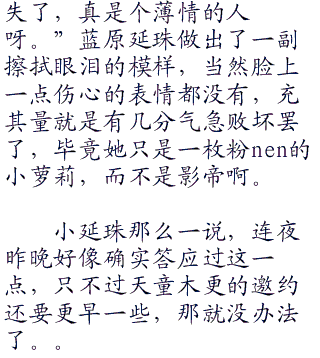 失了，真是个薄情的人
呀。”蓝原延珠做出了一副
擦拭眼泪的模样，当然脸上
一点伤心的表情都没有，充
其量就是有几分气急败坏罢
了，毕竟她只是一枚粉nen的
小萝莉，而不是影帝啊。
小延珠那么一说，连夜
昨晚好像确实答应过这一
点，只不过天童木更的邀约
还要更早一些，那就没办法
了。。